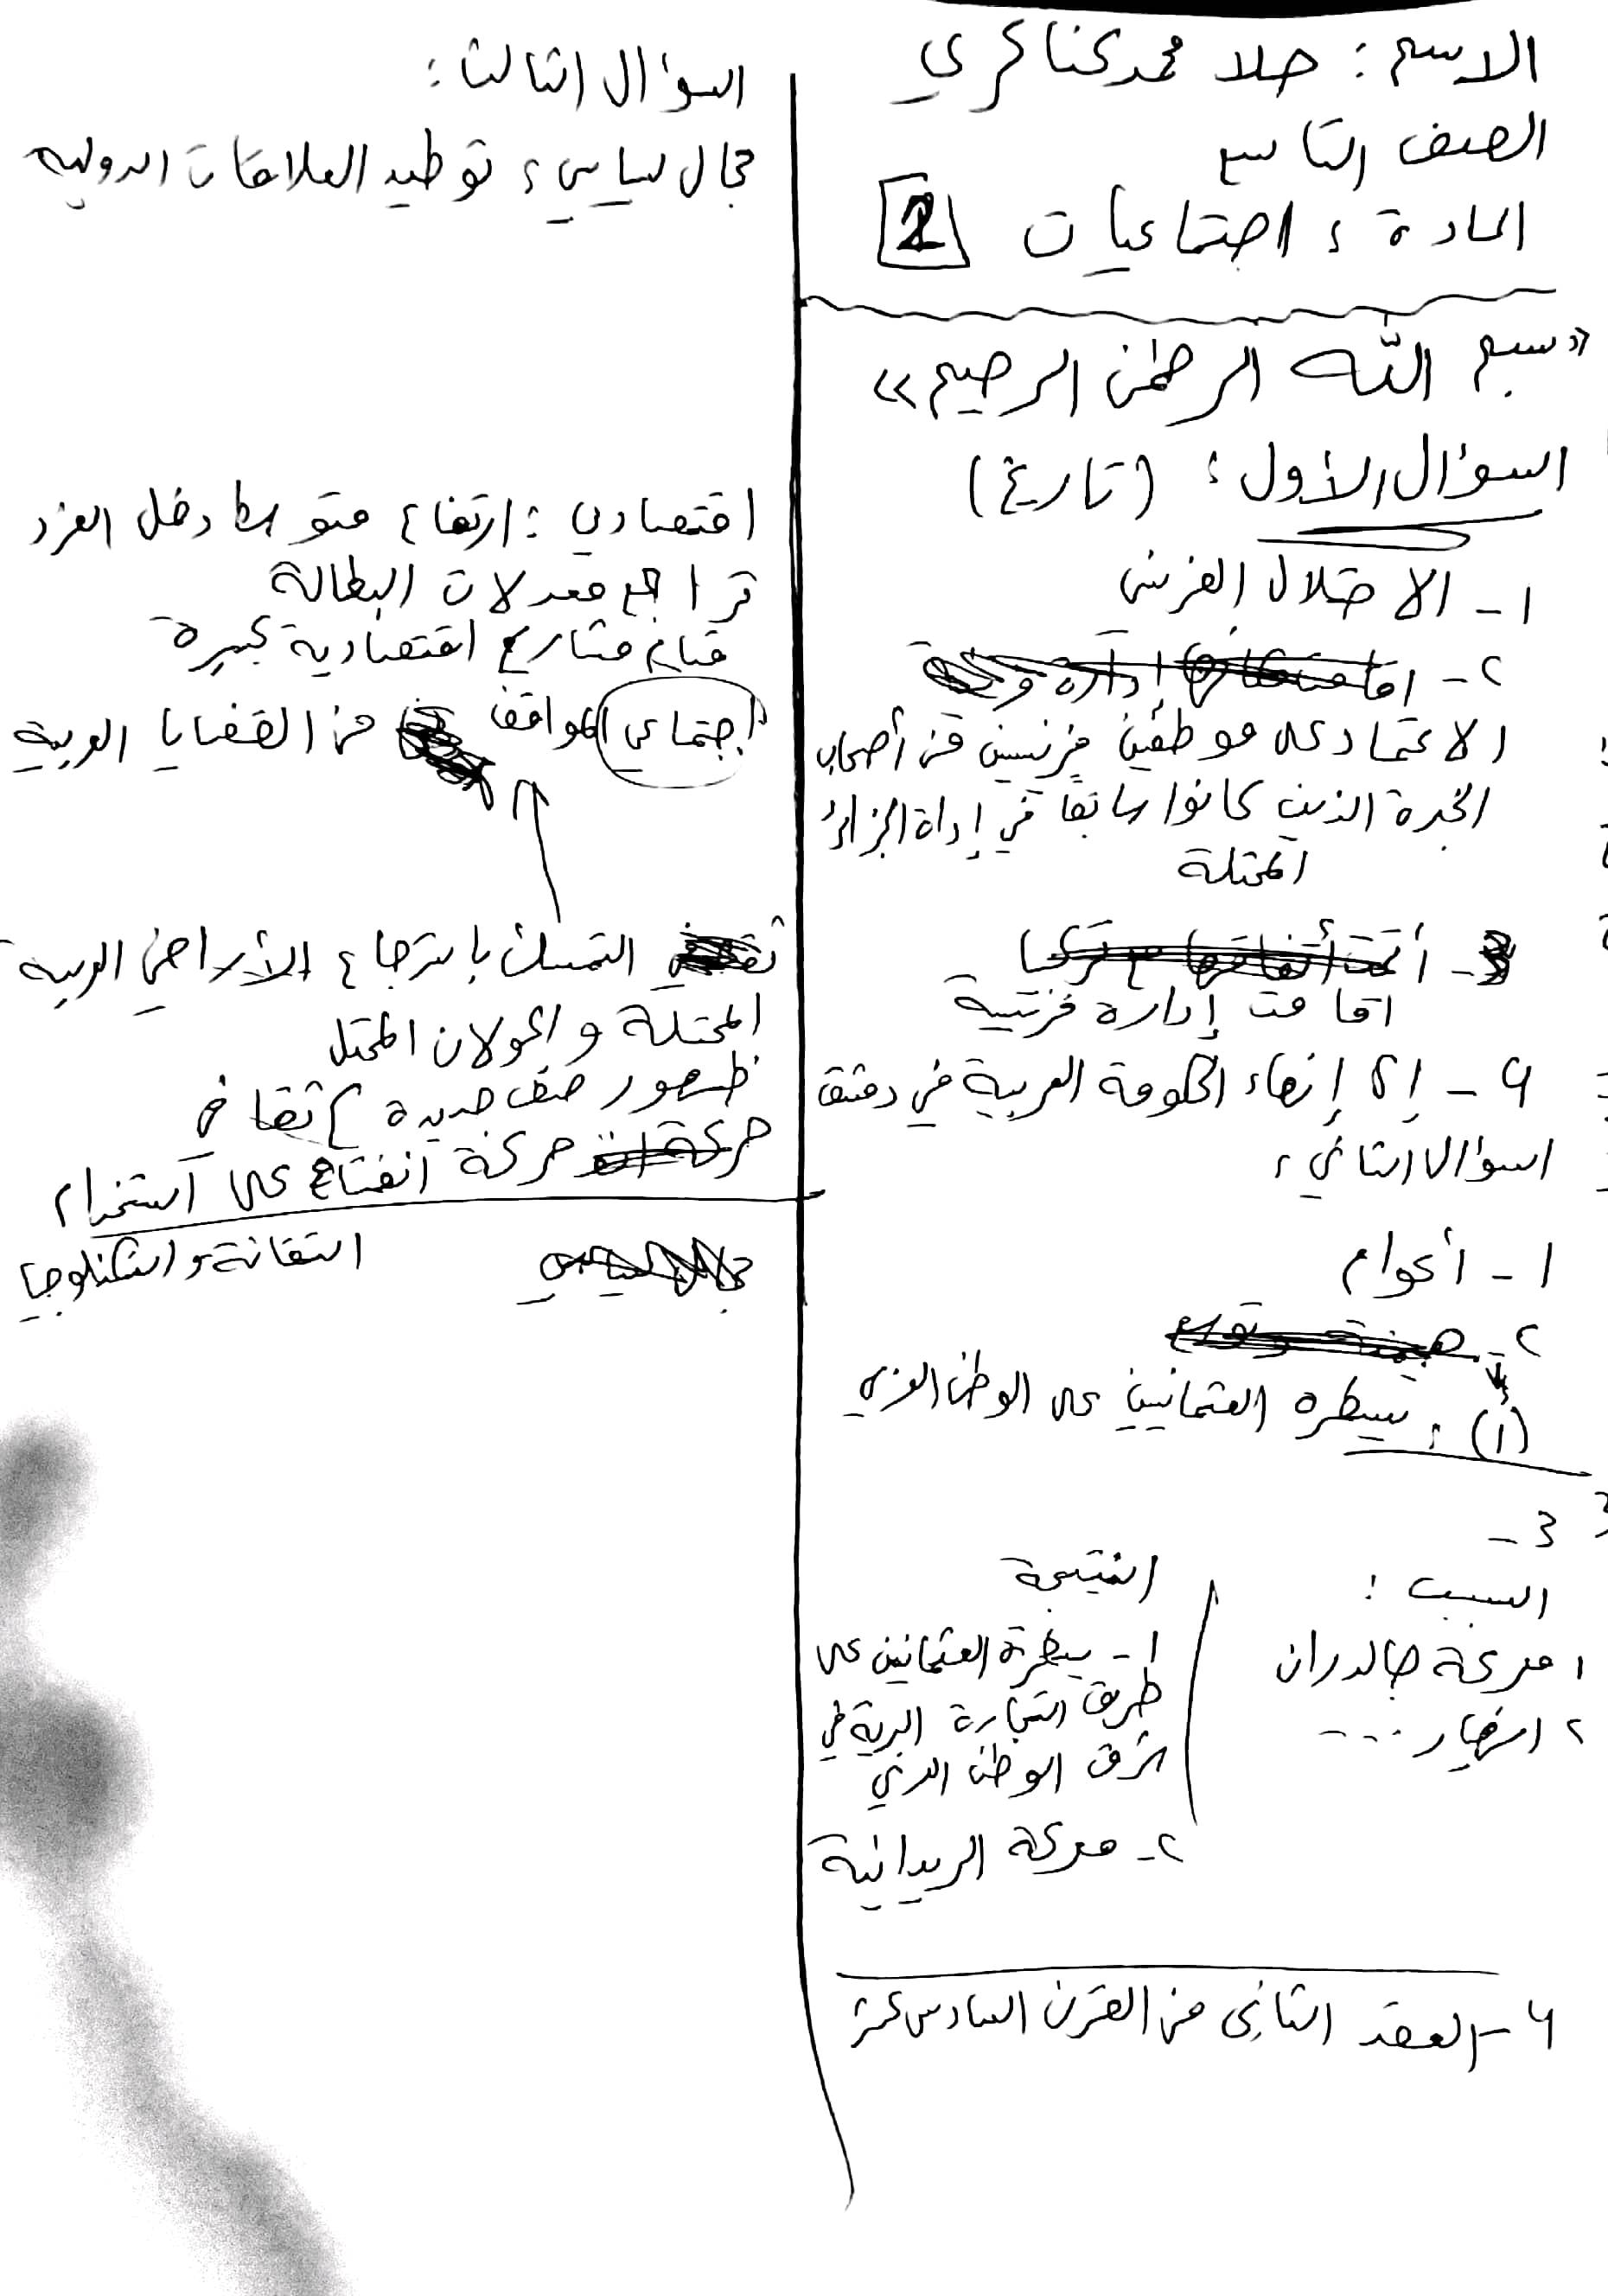 الاسم : حلا محمد كناكري
الصف التاسع
المادة : اجتماعيات 2
«بسم الله الرحمن الرحيم»
السؤال الأول : (تاريخ)
1- الاحتلال الفرنسي
2-
الاعتماد على موظفين فرنسيين من أصحاب
الخبرة الذين كانوا سابقاً في إدارة الجزائر
المحتلة
3-
اقامت إدارة فرنسية
4- إلى إنهاء الحكومة العربية في دمشق
السؤال الثاني :
1- أعوام
2-
(أ) : سيطرة العثمانيين على الوطن العربي
3-
السبب :
1 معركة جالديران
2 انهيار ...
النتيجة
1- سيطرة العثمانيين على
طريق التجارة البرية في
شرق الوطن العربي
2- معركة الريدانية
4- العقد الثاني من القرن السادس عشر
السؤال الثالث :
مجال سياسي : توطيد العلاقات الدولية
اقتصادي : ارتفاع متوسط دخل الفرد
تراجع معدلات البطالة
قيام مشاريع اقتصادية كبيرة
اجتماعي المواقف من القضايا العربية
التمسك باسترجاع الأراضي العربية
المحتلة والجولان المحتل
ظهور صحف جديدة ثقافي
حركة انفتاح على استخدام
التقانة والتكنلوجيا